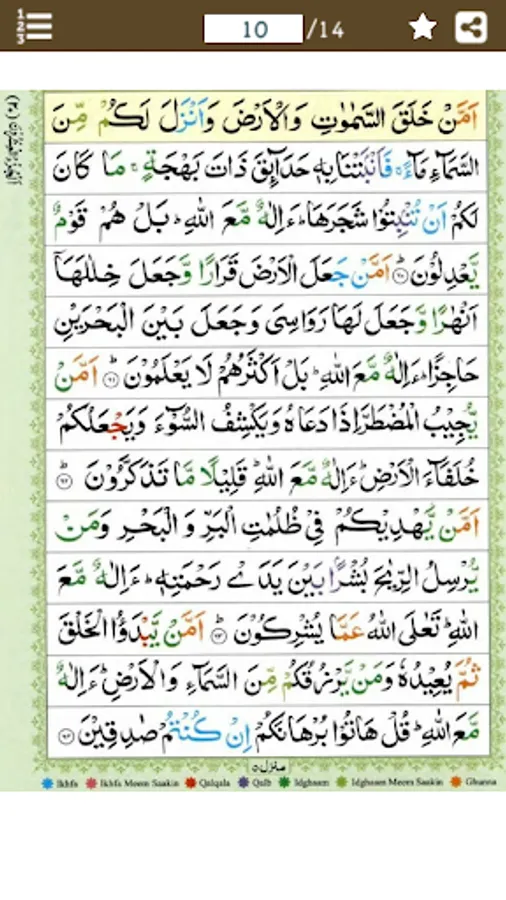 10 /14
اَمَّنْ خَلَقَ السَّمٰوٰتِ وَالْاَرْضَ وَاَنْزَلَ لَكُمْ مِّنَ
السَّمَآءِ مَآءً ۚ فَاَنْۢبَتْنَا بِهٖ حَدَآئِقَ ذَاتَ بَهْجَةٍ ۚ مَا كَانَ
لَكُمْ اَنْ تُنْۢبِتُوْا شَجَرَهَا ؕ ءَاِلٰهٌ مَّعَ اللّٰهِ ؕ بَلْ هُمْ قَوْمٌ
يَّعْدِلُوْنَ ؕ﴿۶۰﴾ اَمَّنْ جَعَلَ الْاَرْضَ قَرَارًا وَّجَعَلَ خِلٰلَهَاۤ
اَنْهٰرًا وَّجَعَلَ لَهَا رَوَاسِیَ وَجَعَلَ بَيْنَ الْبَحْرَيْنِ
حَاجِزًا ؕ ءَاِلٰهٌ مَّعَ اللّٰهِ ؕ بَلْ اَكْثَرُهُمْ لَا يَعْلَمُوْنَ ؕ﴿۶۱﴾ اَمَّنْ
يُّجِيْبُ الْمُضْطَرَّ اِذَا دَعَاهُ وَيَكْشِفُ السُّوْٓءَ وَيَجْعَلُكُمْ
خُلَفَآءَ الْاَرْضِ ؕ ءَاِلٰهٌ مَّعَ اللّٰهِ ؕ قَلِيْلًا مَّا تَذَكَّرُوْنَ ؕ﴿۶۲﴾
اَمَّنْ يَّهْدِيْكُمْ فِیْ ظُلُمٰتِ الْبَرِّ وَ الْبَحْرِ وَمَنْ
يُّرْسِلُ الرِّيٰحَ بُشْرًۢا بَيْنَ يَدَیْ رَحْمَتِهٖ ؕ ءَاِلٰهٌ مَّعَ
اللّٰهِ ؕ تَعٰلَى اللّٰهُ عَمَّا يُشْرِكُوْنَ ؕ﴿۶۳﴾ اَمَّنْ يَّبْدَؤُا الْخَلْقَ
ثُمَّ يُعِيْدُهٗ وَمَنْ يَّرْزُقُكُمْ مِّنَ السَّمَآءِ وَالْاَرْضِ ؕ ءَاِلٰهٌ
مَّعَ اللّٰهِ ؕ قُلْ هَاتُوْا بُرْهَانَكُمْ اِنْ كُنْتُمْ صٰدِقِيْنَ ﴿۶۴﴾
منزل ۵
Ikhfa Ikhfa Meem Saakin Qalqala Qalb Idghaam Idghaam Meem Saakin Ghunna